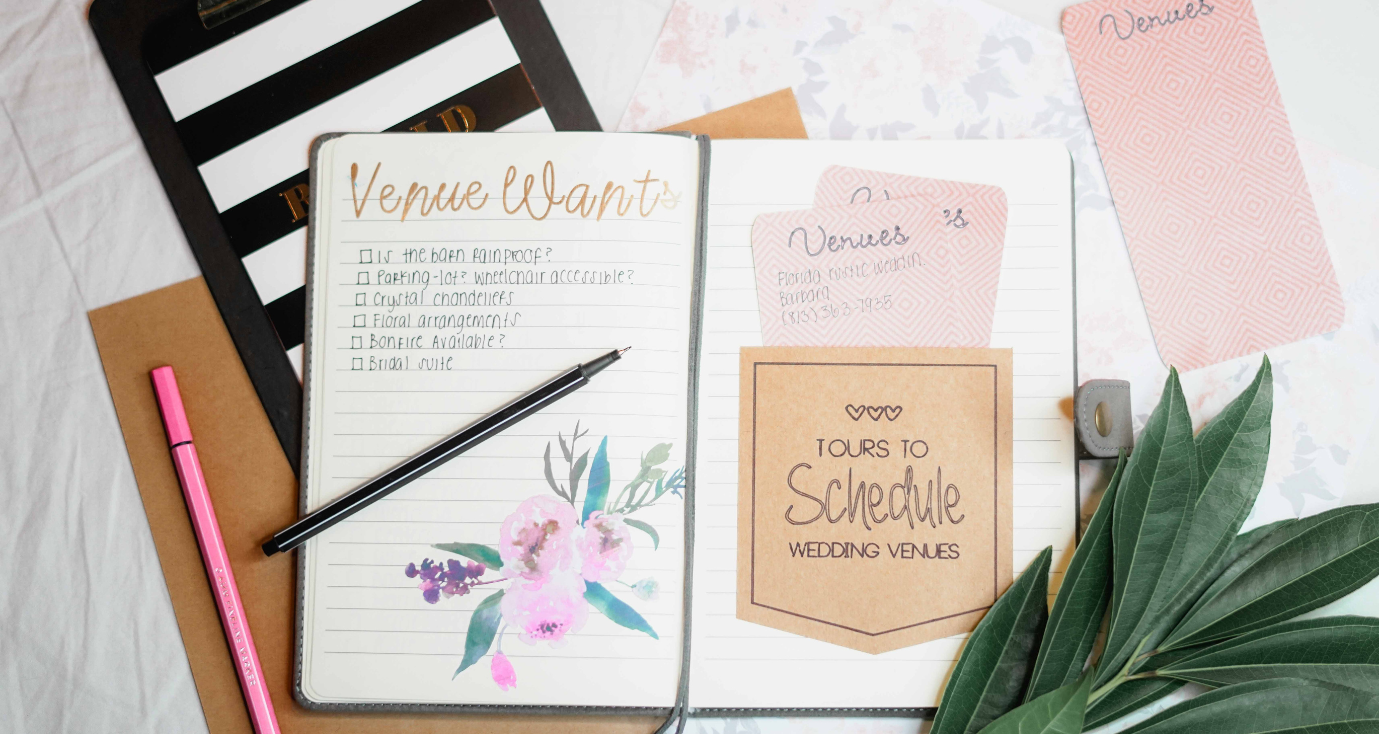 Venue Wants
Is the barn rainproof?
Parking-lot? wheelchair accessible?
Crystal chandeliers
Floral arrangements
Bonfire Available?
Bridal suite
Venues
Venues 's
Florida rustic
Barbara
(813) 363-7935
TOURS TO
Schedule
WEDDING VENUES